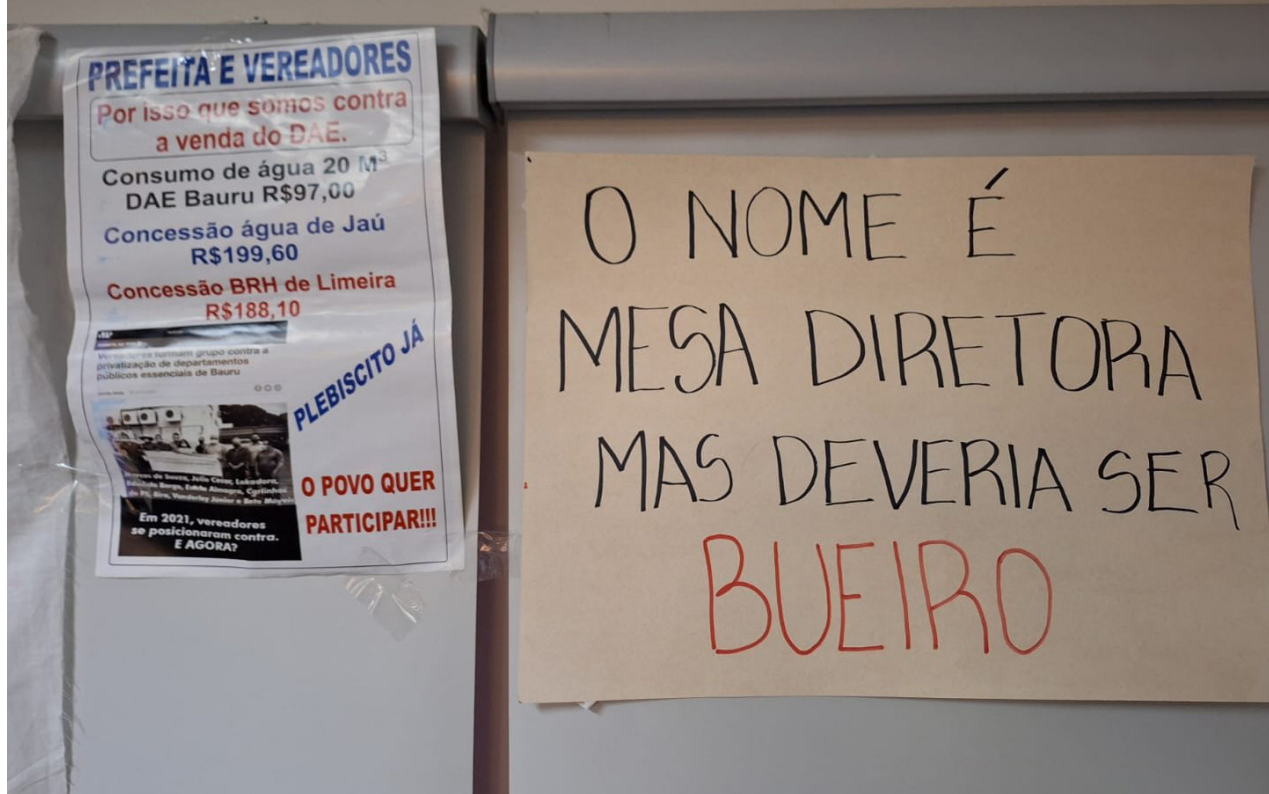 PREFEITA E VEREADORES
Por isso que somos contra
a venda do DAE.
Consumo de água 20 M³
DAE Bauru R$97,00
Concessão água de Jaú
R$199,60
Concessão BRH de Limeira
R$188,10
Vereadores formam grupo contra a
privatização de departamentos
públicos essenciais de Bauru
PLEBISCITO JÁ
de Souza, Julio Cesar,
Borgo,
Vanderley Júnior e Beto
Em 2021, vereadores
se posicionaram contra.
E AGORA?
O POVO QUER
PARTICIPAR!!!
O NOME É
MESA DIRETORA
MAS DEVERIA SER
BUEIRO